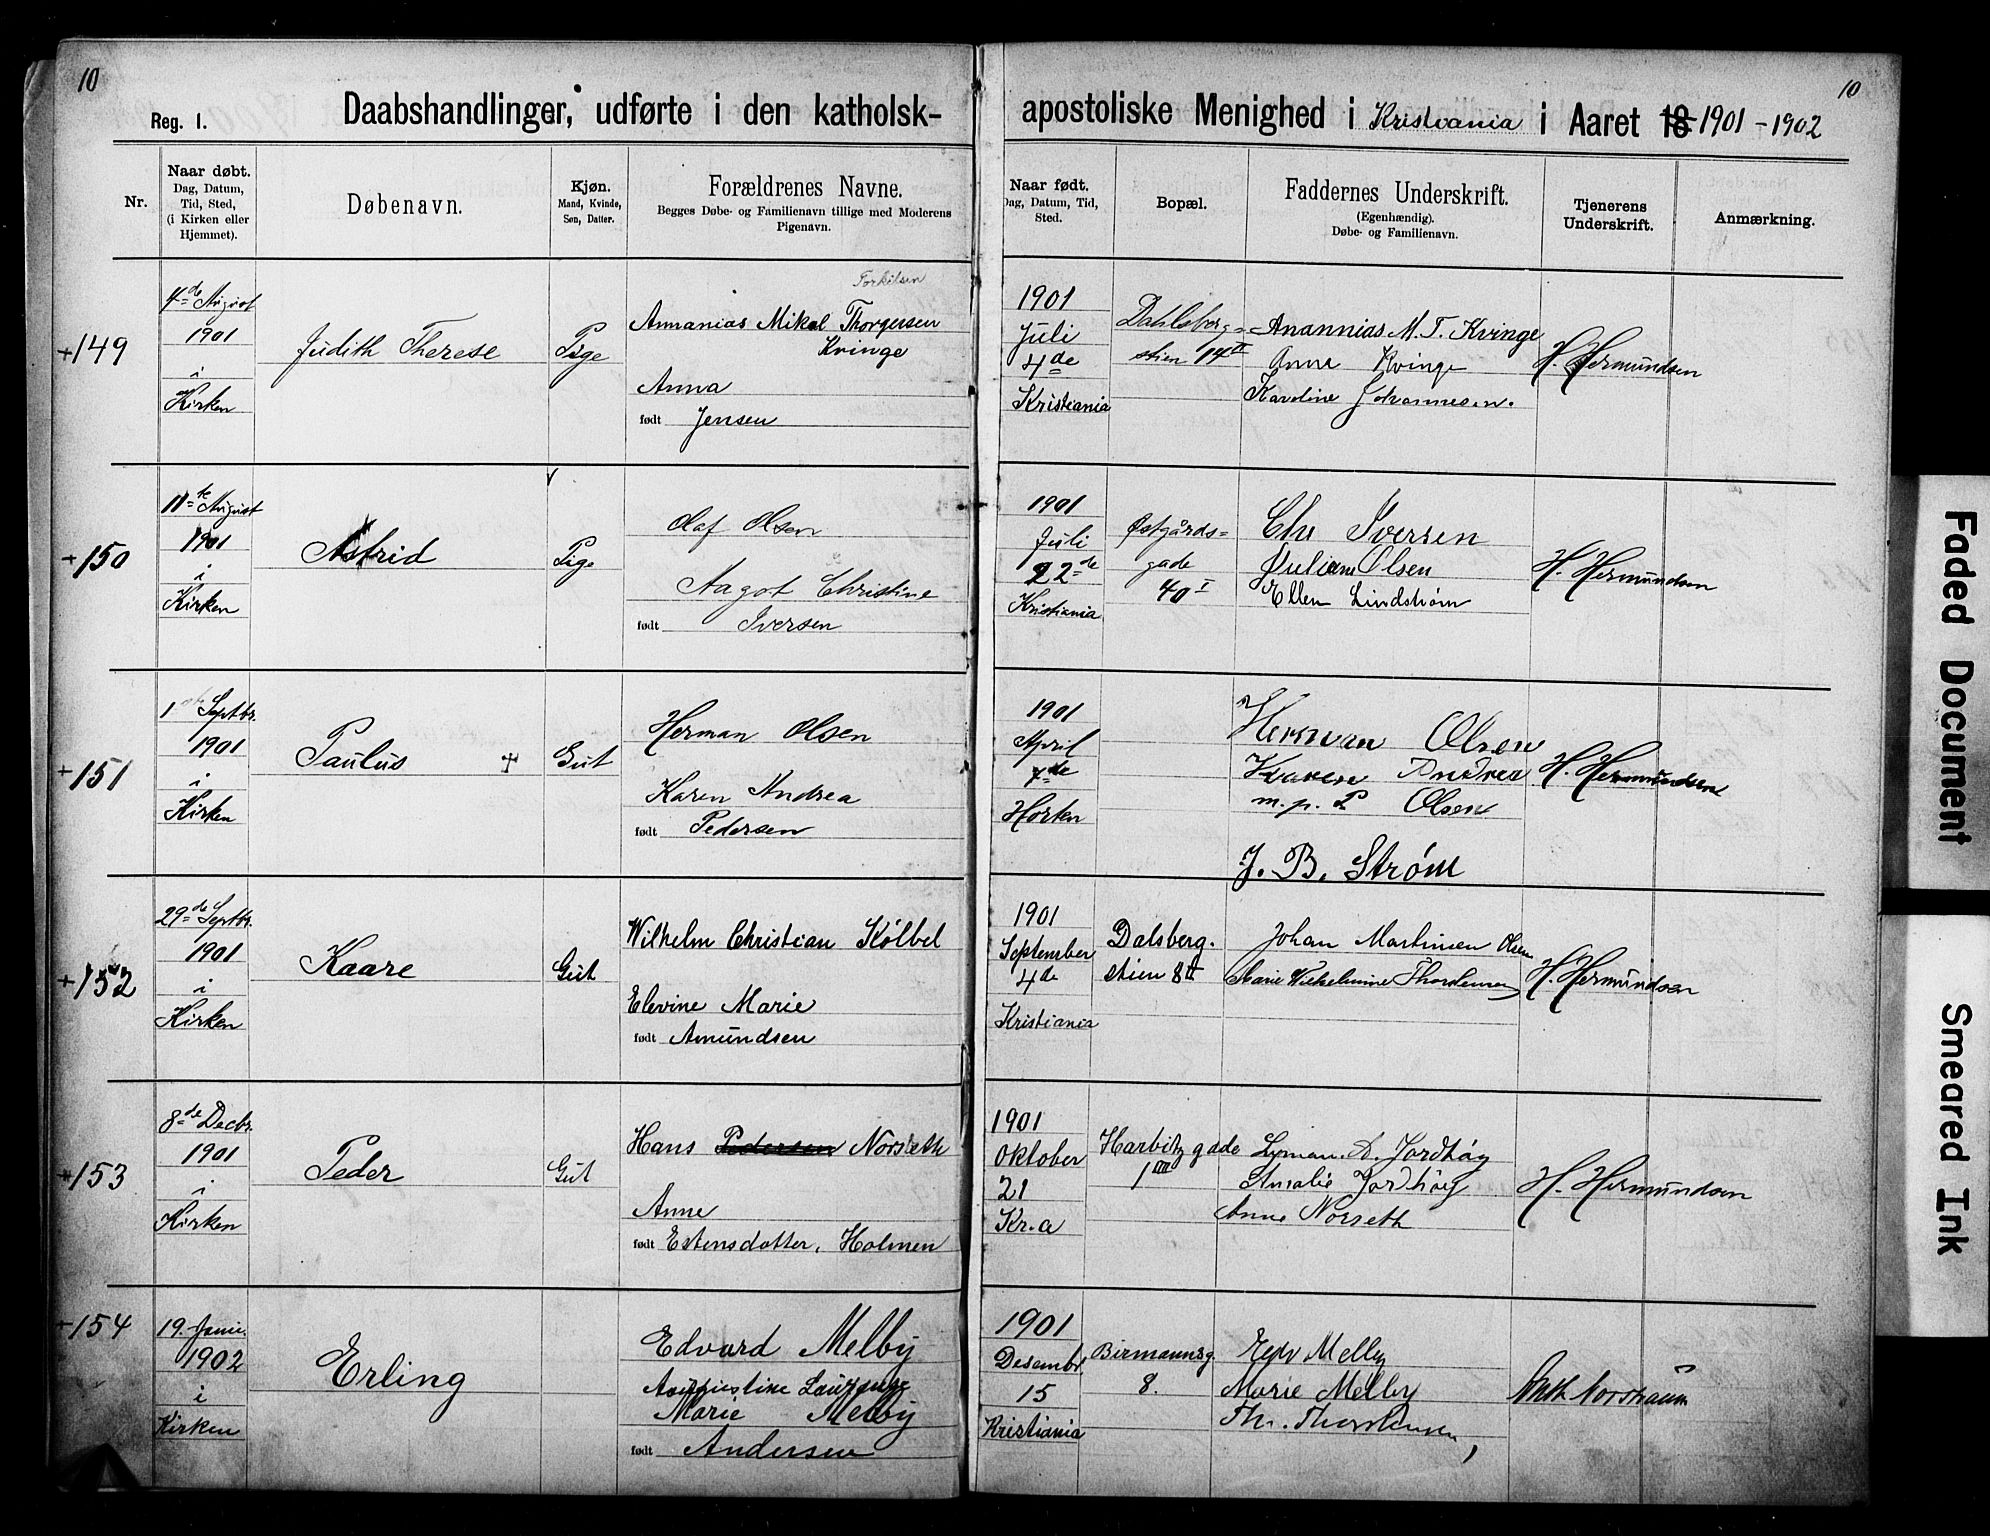 10
10
Daabshandlinger, udførte i den katholsk-apostoliske Menighed i Kristiania i Aaret 18 1901-1902
Reg. 1.
Nr.
Naar døbt.
Dag, Datum,
Tid, Sted,
(i Kirken eller
Hjemmet).
Døbenavn.
Kjøn.
Mand, Kvinde,
Søn, Datter.
Forældrenes Navne.
Begges Døbe- og Familienavn tillige med Moderens
Pigenavn.
Naar født.
Dag, Datum, Tid,
Sted.
Bopæl.
Faddernes Underskrift.
(Egenhændig).
Døbe- og Familienavn.
Tjenerens
Underskrift.
Anmærkning.
+149
4de August
1901
i
Kirken
Judith Therese
Pige
Torkilsen
Annanias Mikal Thorgersen
Kvinge
Anna
født Jensen
1901
Juli
4de
Kristiania
Dahlsberg=
stien 14 II
Anannias M. T. Kvinge
Anna Kvinge
Karoline Johannesen.
H. Hermundsen
+150
11te August
1901
i
Kirken
Astrid
Pige
Olaf Olsen
Aagot Christine
født Iversen
1901
Juli
22de
Kristiania
Østgårds=
gade
40 I
Chr Iversen
Juliane Olsen
Ellen Lindstrøm
H. Hermundsen
+151
1 Septbr.
1901
i
Kirken
Paulus
Gut
Herman Olsen
Karen Andrea
født Pedersen
1901
April
7de
Horten
Herman Olsen
Karen Andrea
m. p. P Olsen
J. B. Strøm
H. Hermundsen
+152
29de Septbr.
1901
i
Kirken
Kaare
Gut
Wilhelm Christian Kölbel
Elevine Marie
født Amundsen
1901
September
4de
Kristiania
Dalsberg.
stien 8 II
Johan Martinien Olsen
Marie Wilhelmine Thordensen
H. Hermundsen
+153
8de Decbr.
1901
i
Kirken
Peder
Gut
Hans Pedersen Norseth
Anne
født Estensdatter, Holmen
1901
Oktober
21
Kr.a
Harbitz gade
1 III
Lyman A. Jordhøy
Amalie Jordhøy
Anne Norseth
H. Hermundsen
+154
19. Janu.
1902
i
Kirken
Erling
Edvard Melby
Augustine
Marie Melby
født Andersen
1901
Desembr
15
Kristiania
Birmannsg.
8.
Edv Melby
Marie Melby
Th. Thorstensen,
Anth Norstraum
Faded Document
Smeared Ink